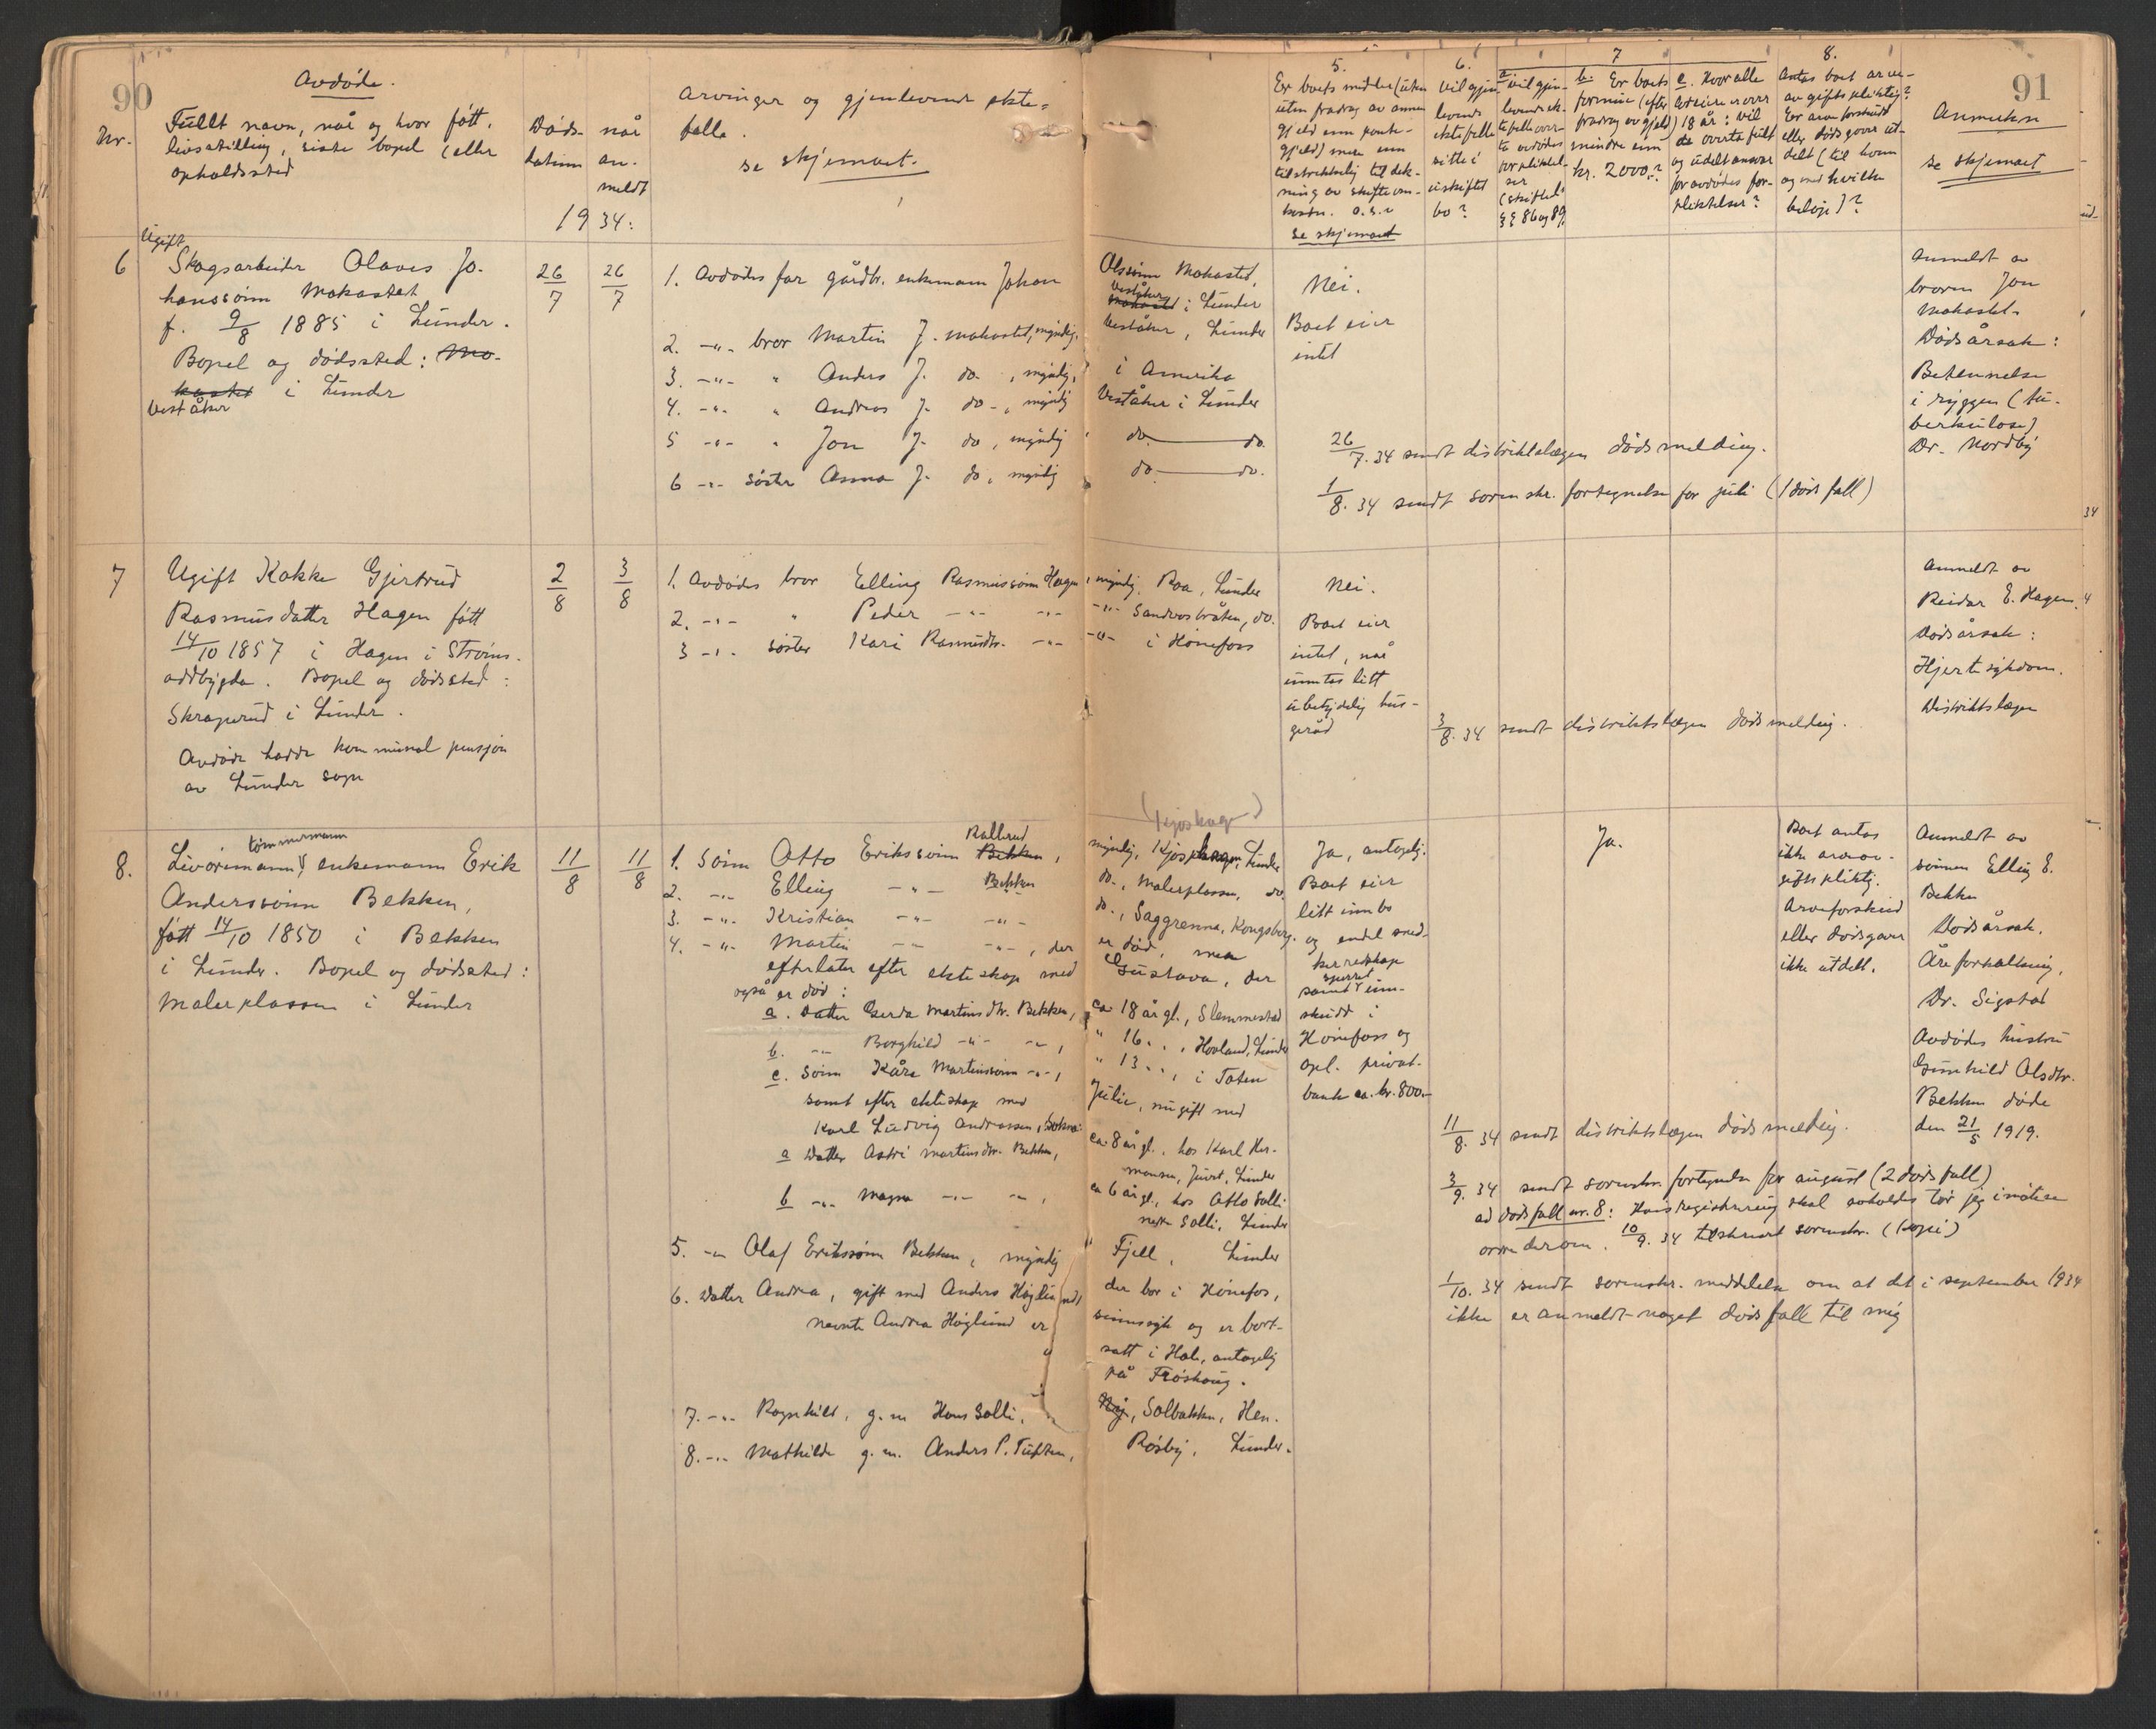 90
Avdøde.
Nr.
Fullt navn, når og hvor født,
livsstilling, siste bopel (eller
opholdssted
Døds-
datum
når
an-
meldt
1934:
Arvinger og gjenlevende ekte-
felle.
se skjemaet.
5.
Er boets midler (uten
uten fradrag av annen
gjeld enn pante-
gjeld) mere enn
tilstrekkelig til dek-
ning av skifteom-
kostn. o.s.v
se skjemaet
6.
Vil gjen-
levende
ektefelle
sitte i
uskiftet
bo?
7
a vil gjen-
levende ek-
tefelle over-
ta avdødes
forpliktel-
ser
(skiftel.
§§ 86 og 89
b. Er boets
formue (efter
fradrag av gjeld)
mindre enn
kr. 2000,-?
c. Hvor alle
arvinger er over
18 år: vil
de overta fullt
og udelt ansvar
for avdødes for-
pliktelser?
8.
Antas boet arve-
avgiftspliktig?
Er arveforskudd
eller dødsgaver ut-
delt (til hvem
og med hvilke
beløp)?
91
Anmerkn
se skjemaet
6
Ugift
Skogsarbeider Olaves Jo-
hanssønn Mokastet
f. 9/8 1885 i Lunder.
Bopel og dødssted: Mo-
kastet i Lunder
Veståker
26/7
26/7
1. Avdødes far gårdbr. enkemann Johan Olssønn Mokastet,
Veståker
Mokastet i Lunder
2. -"- bror Martin J. Mokastet, myndig, Veståker, Lunder
3. -"- " Anders J. do. , myndig, i Amerika
4. -"- " Andreas J. do - , myndig Veståker i Lunder
5 -"- " Jon J. do , myndig do. — do.
6 -"- søster Anna J. do , myndig do — do.
Nei.
Boet eier
intet
26/7. 34 sendt distriktslægen dødsmelding.
1/8. 34 sendt sorenskr. fortegnelse for juli (1 dødsfall)
Anmeldt av
broren Jon
Mokastet.
Dødsårsak:
Betennelse
i ryggen (tu-
berkulose)
Dr. Nordby
7
Ugift Kokke Gjertrud
Rasmusdatter Hagen født
14/10 1857 i Hagen i Strøms-
oddbygda. Bopel og dødssted:
Skraperud i Lunder.
Avdøde hadde kommunal pensjon
av Lunder sogn
2/8
3/8
1. Avdødes bror Elling Rasmussønn Hagen, myndig, Roa, Lunder
2. -"- " Peder -"- -"- -"- Sandvosbråten, do.
3 -"- søster Kari Rasmusdtr. -"- -"- i Hønefoss
Nei.
Boet eier
intet, når
unntas litt
ubetydelig hus-
geråd
3/8. 34 sendt distriktslægen dødsmelding.
Anmeldt av
Reidar E. Hagen.
Dødsårsak:
Hjertesykdom.
Distriktslægen
8.
tømmermann
Livøremann, enkemann Erik
Anderssønn Bekken,
født 14/10 1850 i Bekken
i Lunder. Bopel og dødssted:
Malerplassen i Lunder
11/8
11/8
(Kjøskog)
Rallerud
1. Sønn Otto Erikssønn Bekken, myndig, Kjøskogen, Lunder
2. -"- Elling -"- Bekken do., Malerplassen, do.
3. -"- Kristian -"- -"- do., Saggrenna, Kongsberg.
4. -"- Martin -"- -"-, der er død, men
efterlater efter ekteskap med Gustava, der
også er død:
a. Datter Gerda Martinsdtr. Bekken, ca 18 år gl., Slemmestad
b. -"- Borghild -"- -"-, " 16 " ", Hovland, Lunder
c. Sønn Kåre Martinssønn -"-, " 13 " ", i Toten
samt efter ekteskap med Julie, nu gift med
Karl Ludvig Andreassen, Sokna:
a Datter Astri Martinsdtr. Bekken, ca 8 år gl., hos Karl Her-
mansen, Juvet, Lunder
b -"- Magna -"- -"-, ca 6 år gl., hos Otto Solli
nedre Solli, Lunder
5. -"- Olaf Erikssønn Bekken, myndig Fjell, Lunder
6. Datter Andrea, gift med Anders Høglund, der bor i Hønefos,
nevnte Andrea Høglund er sinnssyk og er bort-
satt i Hole, antagelig
på Frøshaug.
7. -"- Ragnhild, g.m Hans Solli, Solbakken, Hen.
8. -"- Mathilde g.m. Anders P. Tuften, Røsby, Lunder.
Ja, antagelig.
Boet eier
litt innbo
og endel sned-
kerredskap
samt innskudd i
Hønefoss og
opl. privat-
bank ca. kr. 800,-
Ja.
Boet antas
ikke arveav-
giftspliktig.
Arveforskudd
eller dødsgaver
ikke utdelt.
11/8. 34 sendt distriktslægen dødsmelding.
3/9. 34 sendt sorenskr. fortegnelse for august (2 dødsfall)
ad dødsfall nr. 8: Hvis registrering skal avholdes tør jeg imøtese
ordre derom. 10/9. 34 tilskrevet sorenskr. (kopi)
1/10. 34 sendt sorenskr. meddelelse om at det i september 1934
ikke er anmeldt noget dødsfall til mig
Anmeldt av
sønnen Elling E.
Bekken
Dødsårsak.
Åreforkalkning,
Dr. Sigstad
Avdødes hustru
Gunhild Olsdtr.
Bekken døde
den 21/5 1919.